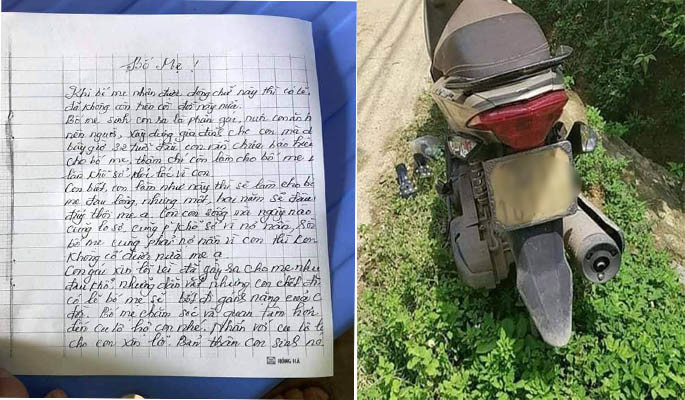 Bố Mẹ!
Khi bố mẹ nhận được dòng chữ này thì có lẽ,
đã không còn trên cõi đời này nữa.
Bố mẹ sinh con ra là phận gái, nuôi con ăn h
nên người, xây dựng gia đình cho con, mà đ
bây giờ 32 tuổi đầu con vẫn chưa báo hiếu
cho bố mẹ, thậm chí còn làm cho bố mẹ
khổ sở vì con
Con biết, con làm như này thì sẽ làm cho bố
mẹ đau lòng, nhưng một, hai năm sẽ đau
thôi mẹ ạ. Còn con sống mà ngày nào
cũng lo sợ, cũng khổ sở vì nợ nần,
bố mẹ cũng phải nợ nần vì con thì con
không cố được nữa mẹ ạ
Con gái xin lỗi vì đã gây ra cho mẹ như
đau khổ, nhưng con chết đi
có lẽ bố mẹ sẽ bớt đi gánh nặng cuộc
đời. Bố mẹ chăm sóc và quan tâm hơn
đến cu tô hộ con nhé. Nhắn với cu tô là
cho con xin lỗi. Bản thân con sinh nó
HỒNG HÀ